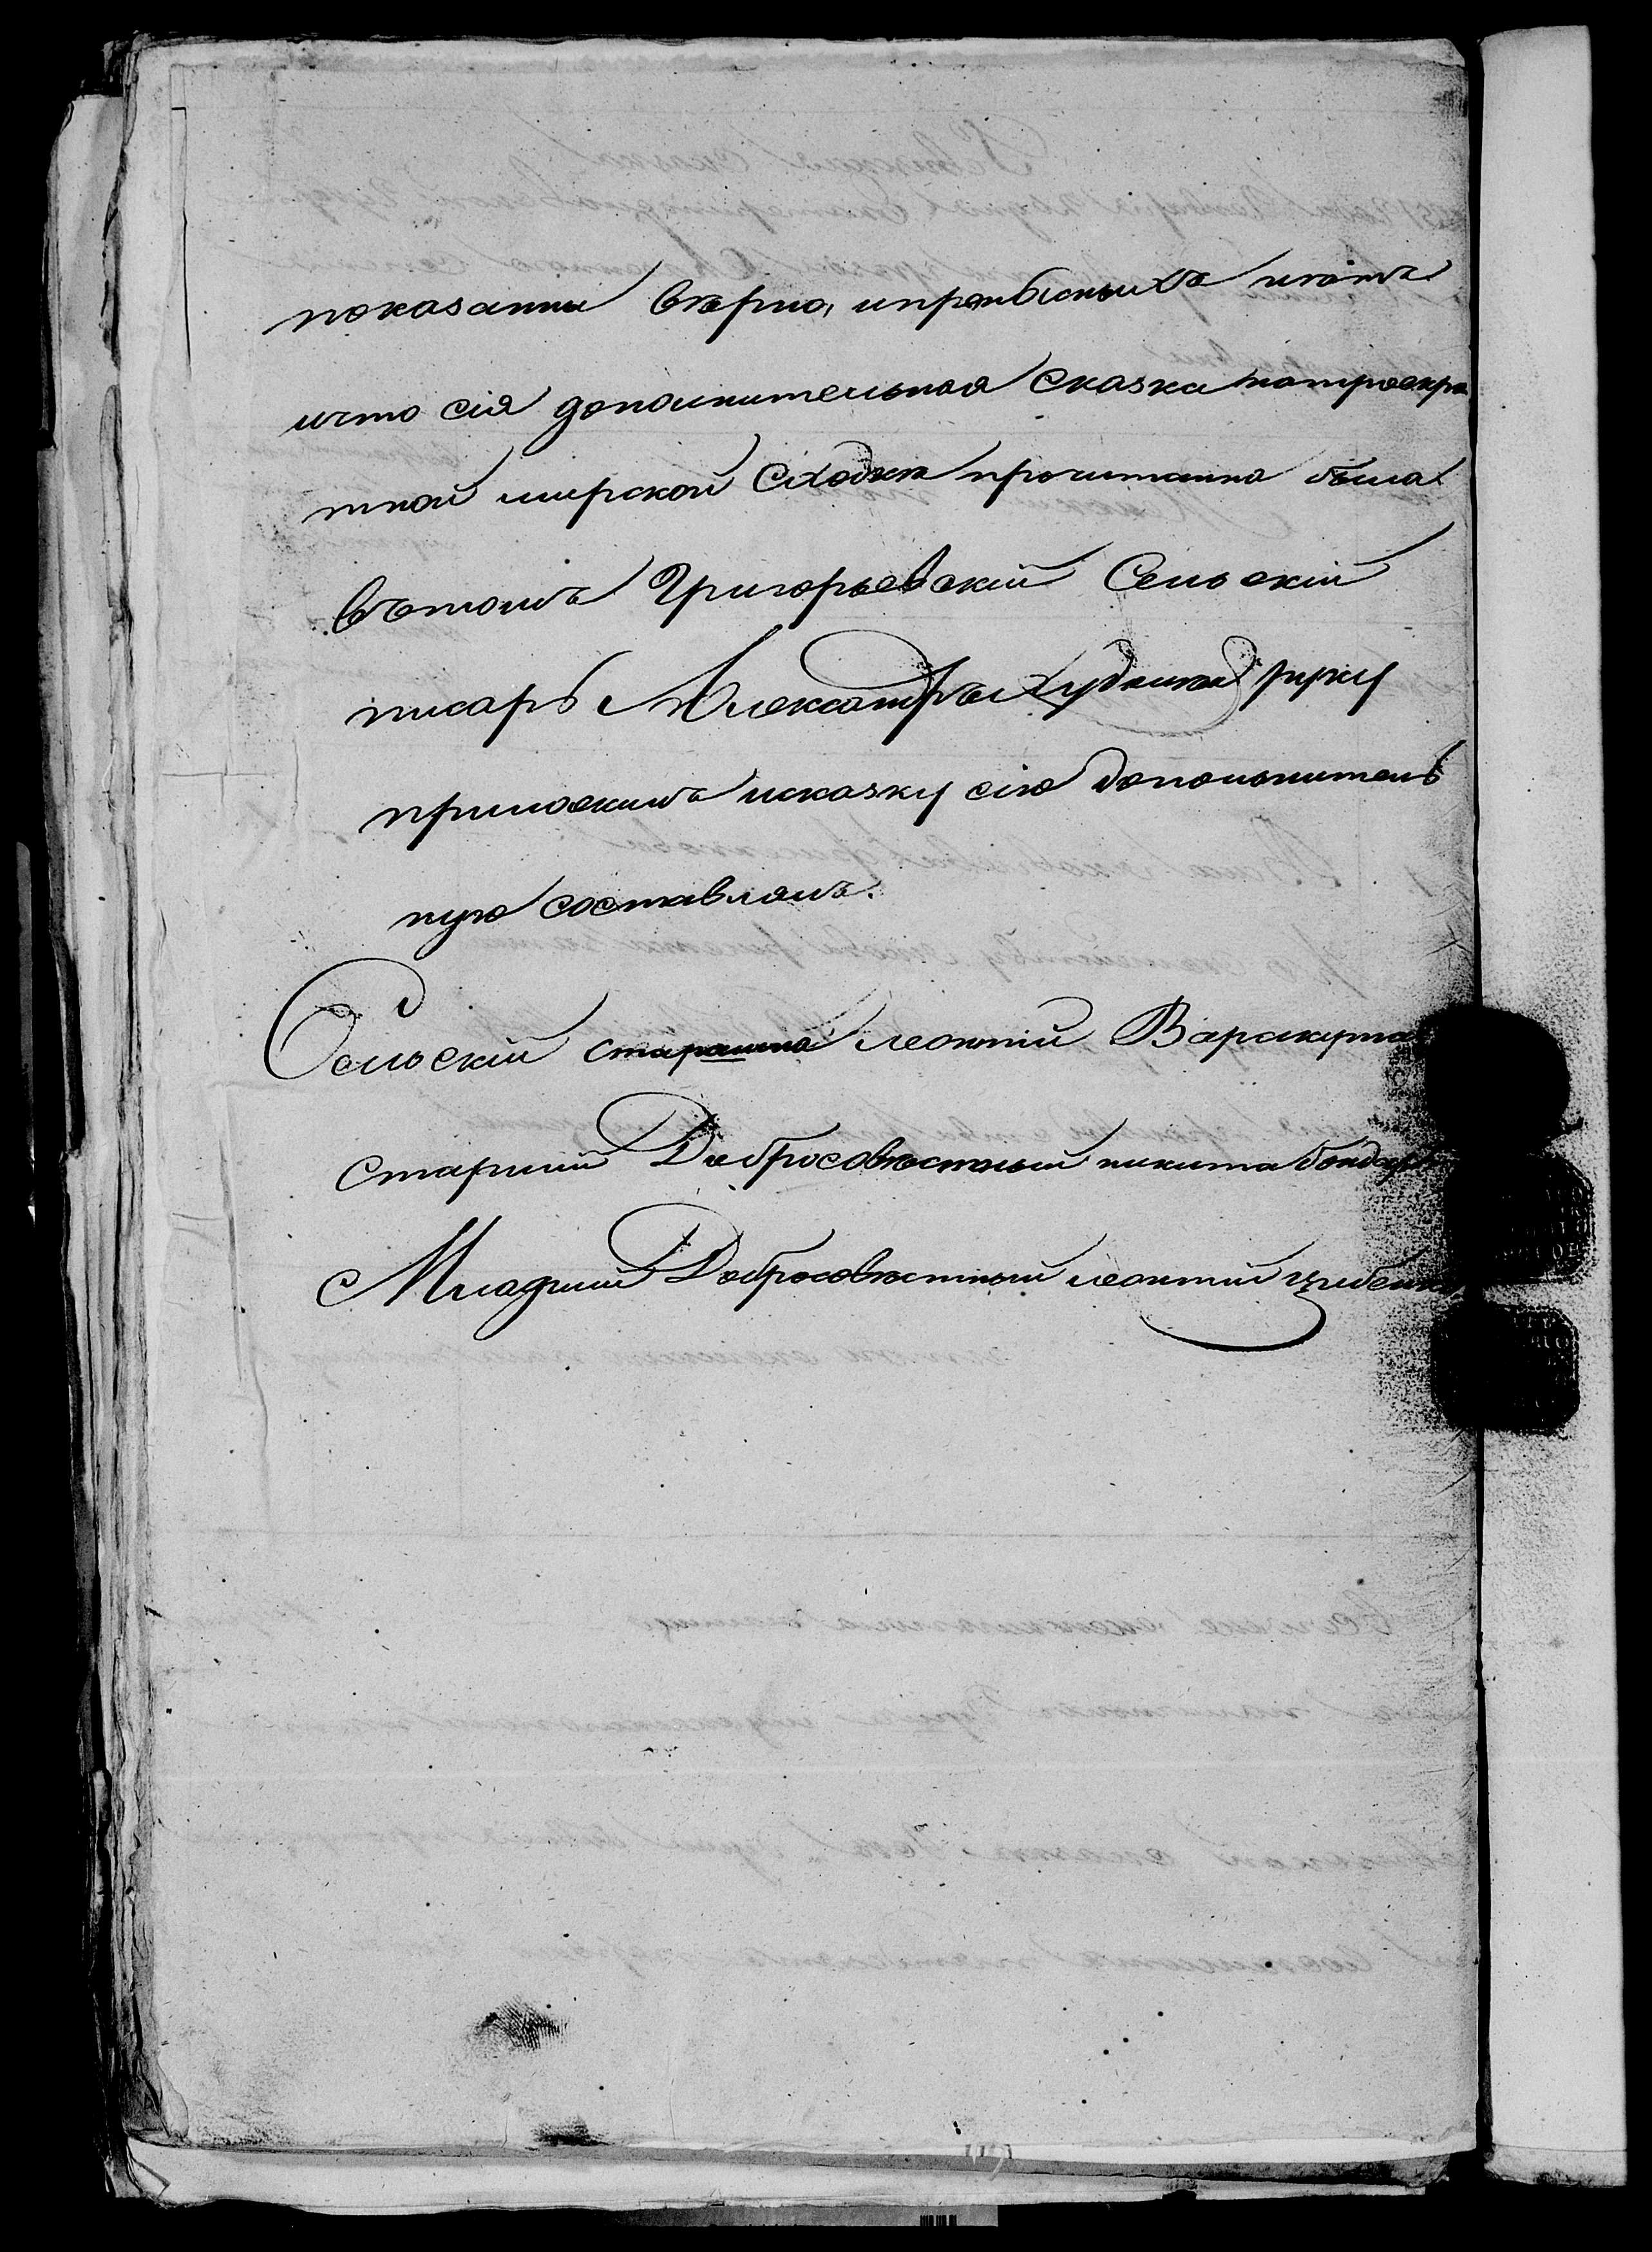 показанны вѣрно, ипрописныхъ нѣтъ
ичто сія дополнительная Сказка натроекра
тной мирской Сходкѣ прочитанна была
вѣтомъ Григорьевскій Сельскій
писарь Александръ руку
приложилъ исказку сію дополнитель
ную составлялъ.
Сельскій старшина леонтій Варакута
старшій Добросовѣстный никита бондар
Младшій Добросовѣстный леонтій цыбенко